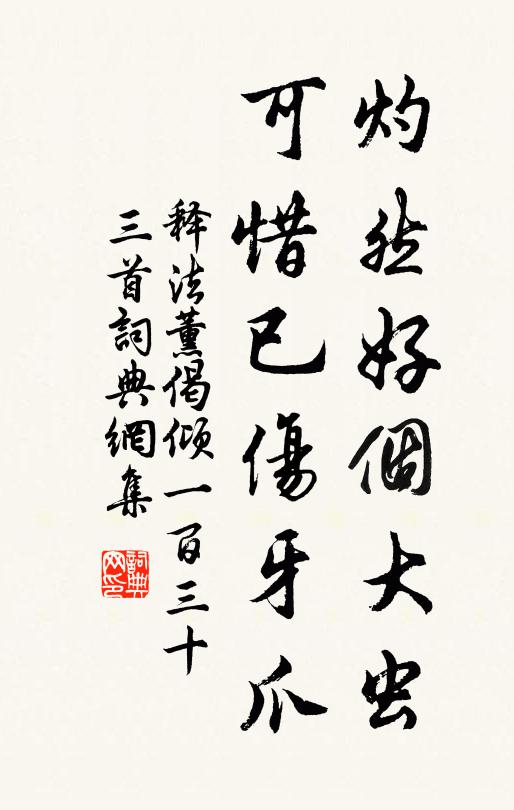 灼然好個大虫
可惜已傷牙爪
释法薰偈倾一百三十
三首詞典網集
詞典网印